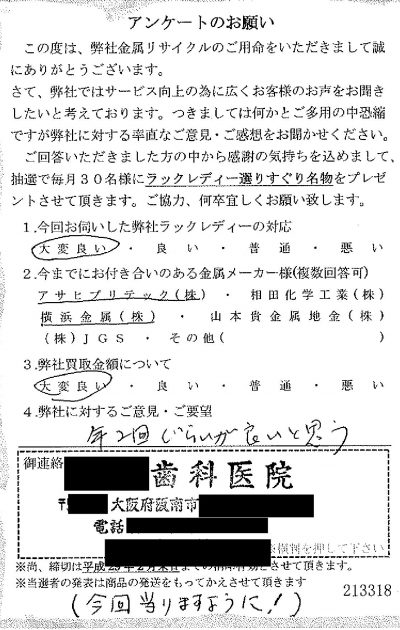 アンケートのお願い
この度は、弊社金属リサイクルのご用命をいただきまして誠
にありがとうございます。
さて、弊社ではサービス向上の為に広くお客様のお声をお聞き
したいと考えております。つきましては何かとご多用の中恐縮
ですが弊社に対する率直なご意見・ご感想をお聞かせください。
ご回答いただきました方の中から感謝の気持ちを込めまして、
抽選で毎月３０名様にラックレディー選りすぐり名物をプレゼ
ントさせて頂きます。ご協力、何卒宜しくお願い致します。
1.今回お伺いした弊社ラックレディーの対応
大変良い ・ 良い ・ 普通 ・ 悪い
2.今までにお付き合いのある金属メーカー様(複数回答可)
アサヒプリテック(株) ・ 相田化学工業(株)
横浜金属(株) ・ 山本貴金属地金(株)
(株)JGS ・ その他( )
3.弊社買取金額について
大変良い ・ 良い ・ 普通 ・ 悪い
4.弊社に対するご意見・ご要望
年2回ぐらいが良いと思う
御連絡
歯科医院
〒 大阪府阪南市
電話
※横判を押して下さい
※尚、締切は平成25年2月末日までの消印有効とさせて頂きます。
※当選者の発表は商品の発送をもってかえさせて頂きます
213318
(今回当りますように!)